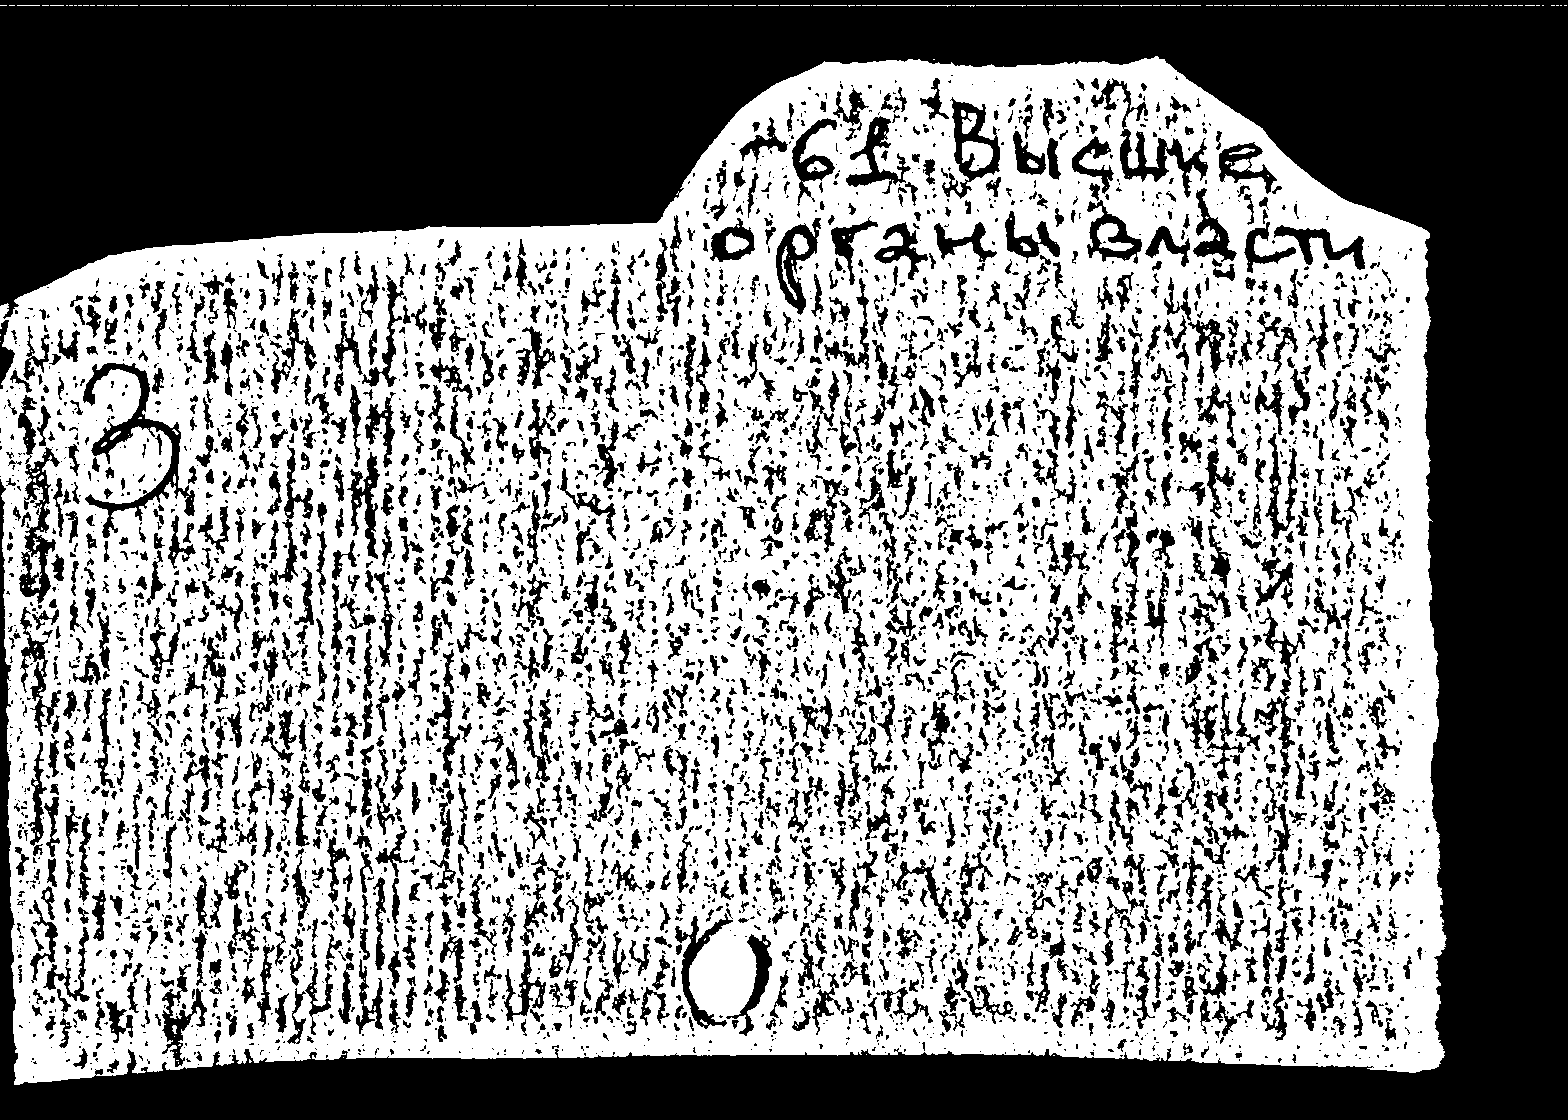 -61 Высшие
органы власти
3